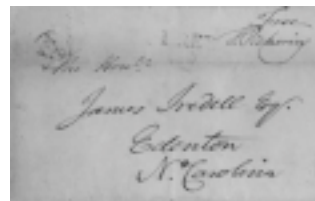 Free
T. Pickering
The Honble
James Iredell Esq.
Edenton
No. Carolina